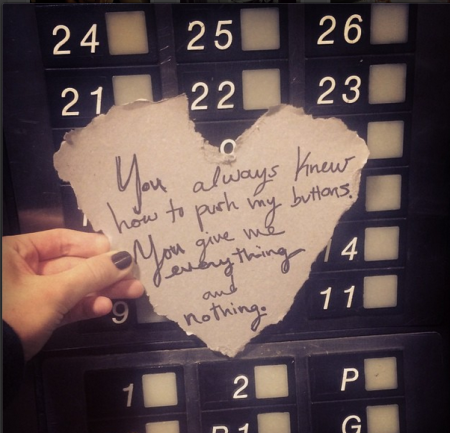 24 25 26
21 22 23
You always knew
how to push my buttons.
You give me
everything
and
nothing.
14
9 11
1 2 P
B1 G